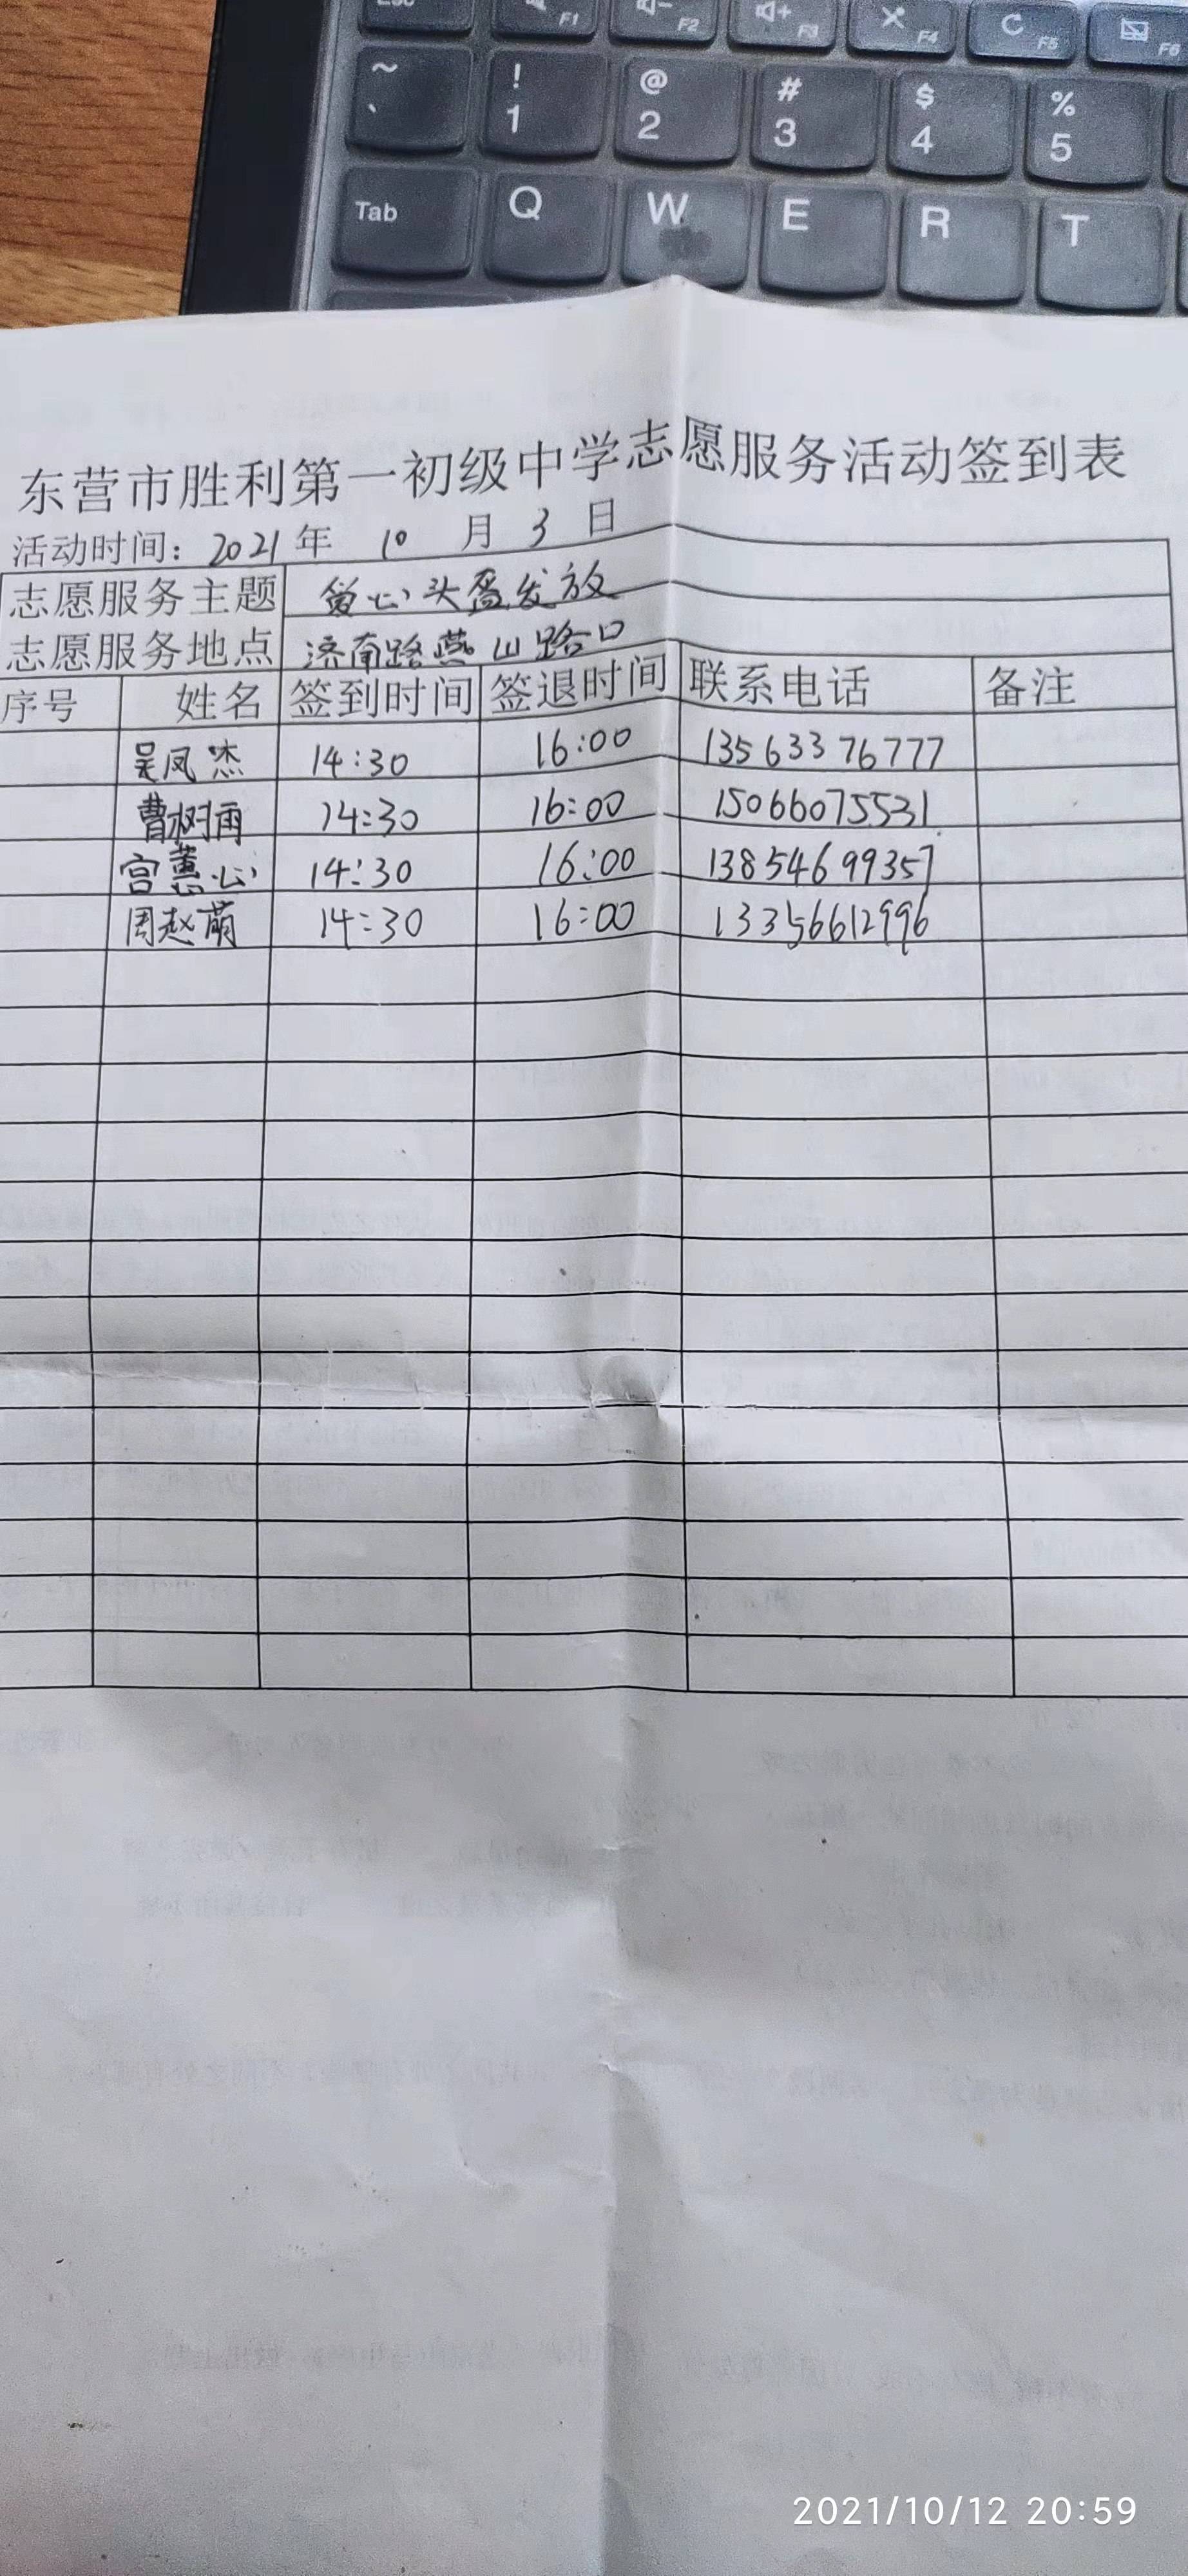 Esc F1 F2 F3 F4 F5 F6
~ ` ! 1 @ 2 # 3 $ 4 % 5
Tab Q W E R T
东营市胜利第一初级中学志愿服务活动签到表
活动时间：2021 年 10 月 3 日
志愿服务主题 爱心头盔发放
志愿服务地点 济南路燕山路口
序号 姓名 签到时间 签退时间 联系电话 备注
吴凤杰 14:30 16:00 13563376777
曹树雨 14:30 16:00 15066075531
宫蕙心 14:30 16:00 13854699357
周赵萌 14:30 16:00 13356612996
2021/10/12 20:59